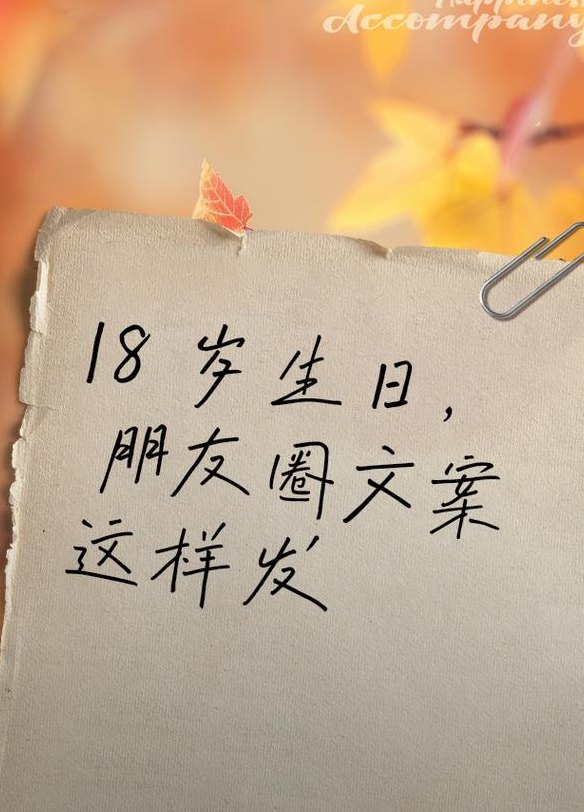 Happiness
Accompany
18岁生日,
朋友圈文案
这样发